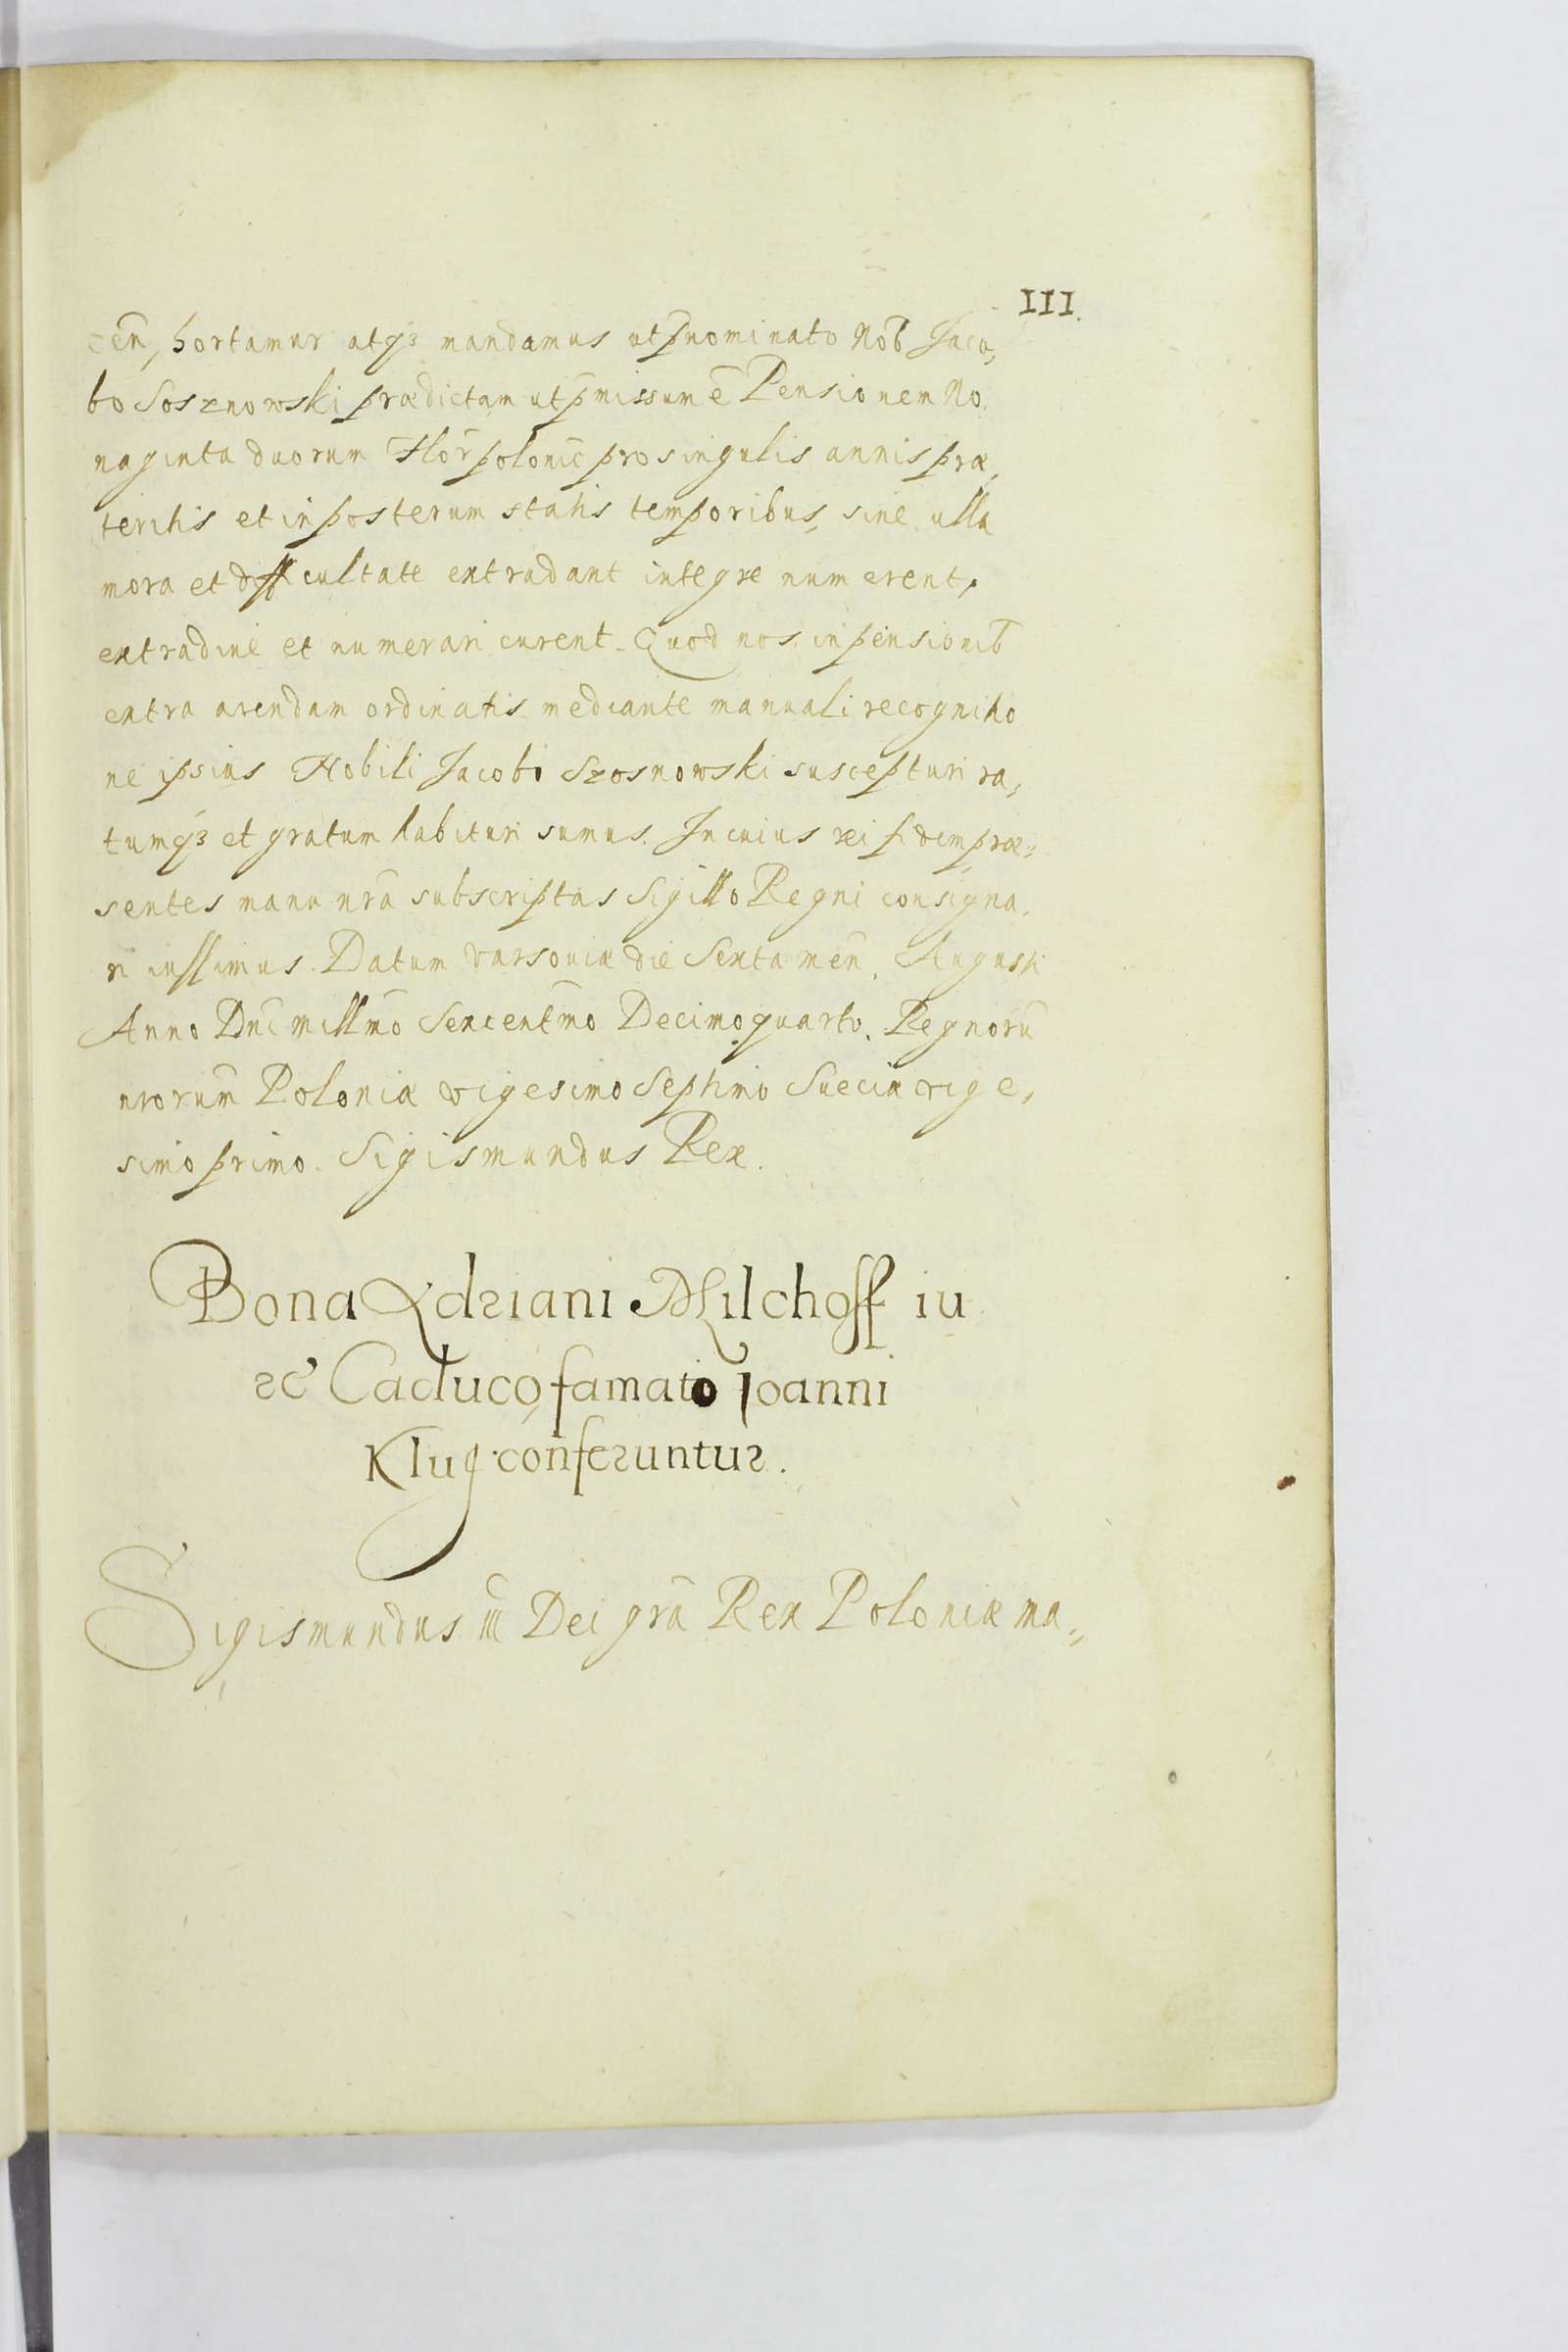 III.
cen̄, hortamur atqȝ mandamus ut p̄nominato Nob̄ Jaco,
bo Sosznowski prædictam ut p̄missum ē Pensionem No
naginta duorum Flor̄ polonic̄ pro singulis annis præ,
teritis et in posterum statis temporibus, sine ulla
mora et difficultate extradant integre numerent,
extradiue et numerari curent. Quod nos in pensionib̄
extra arendam ordinatis mediante manuali recognitio
ne ipsius Nobili Jacobi Szosnowski suscepturi ra,
tumqȝ et gratum habituri sumus. In cuius rei fidem præ=
sentes manu nrā subscriptas Sigillo Regni consigna
ri iussimus. Datum Varsoviæ die Sexta men̄. Augusti
Anno Dnī millm̄o Sexcentm̄o Decimoquarto. Regnorū
nrorum̄ Poloniæ vigesimo Septimo Sueciæ vige,
simo primo. Sigismundus Rex.
Bona Adriani Milchoff iu
re Caduco famato Joanni
Klug conferuntur.
Sigismundus III Dei grā Rex Poloniæ ma=